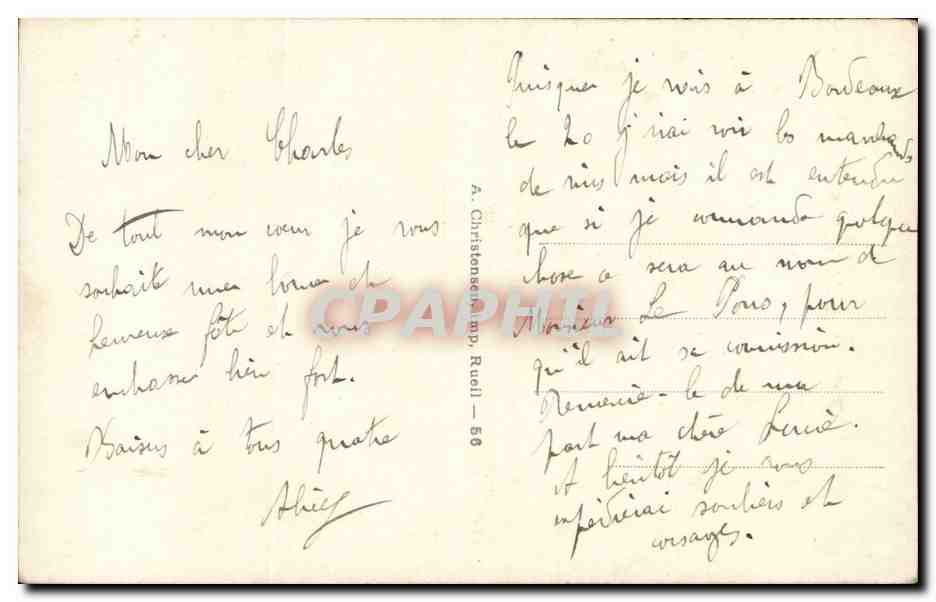 Mon cher Charles
De tout mon cœur je vous
souhaite une bonne et
heureuse fête et vous
embrasse bien fort.
Baisers à tous quatre
A. Christensen, imp, Rueil — 56
Puisque je vais à Bordeaux
le 20 j'irai voir les marchands
de vins mais il est entendu
que si je commande quelque
chose ce sera au nom de
Monsieur Le Pons, pour
qu'il ait sa comission.
Remercie-le de ma
part ma chère Lucie.
A bientôt je vous
expédierai souliers et
corsages.
CPAPHIL